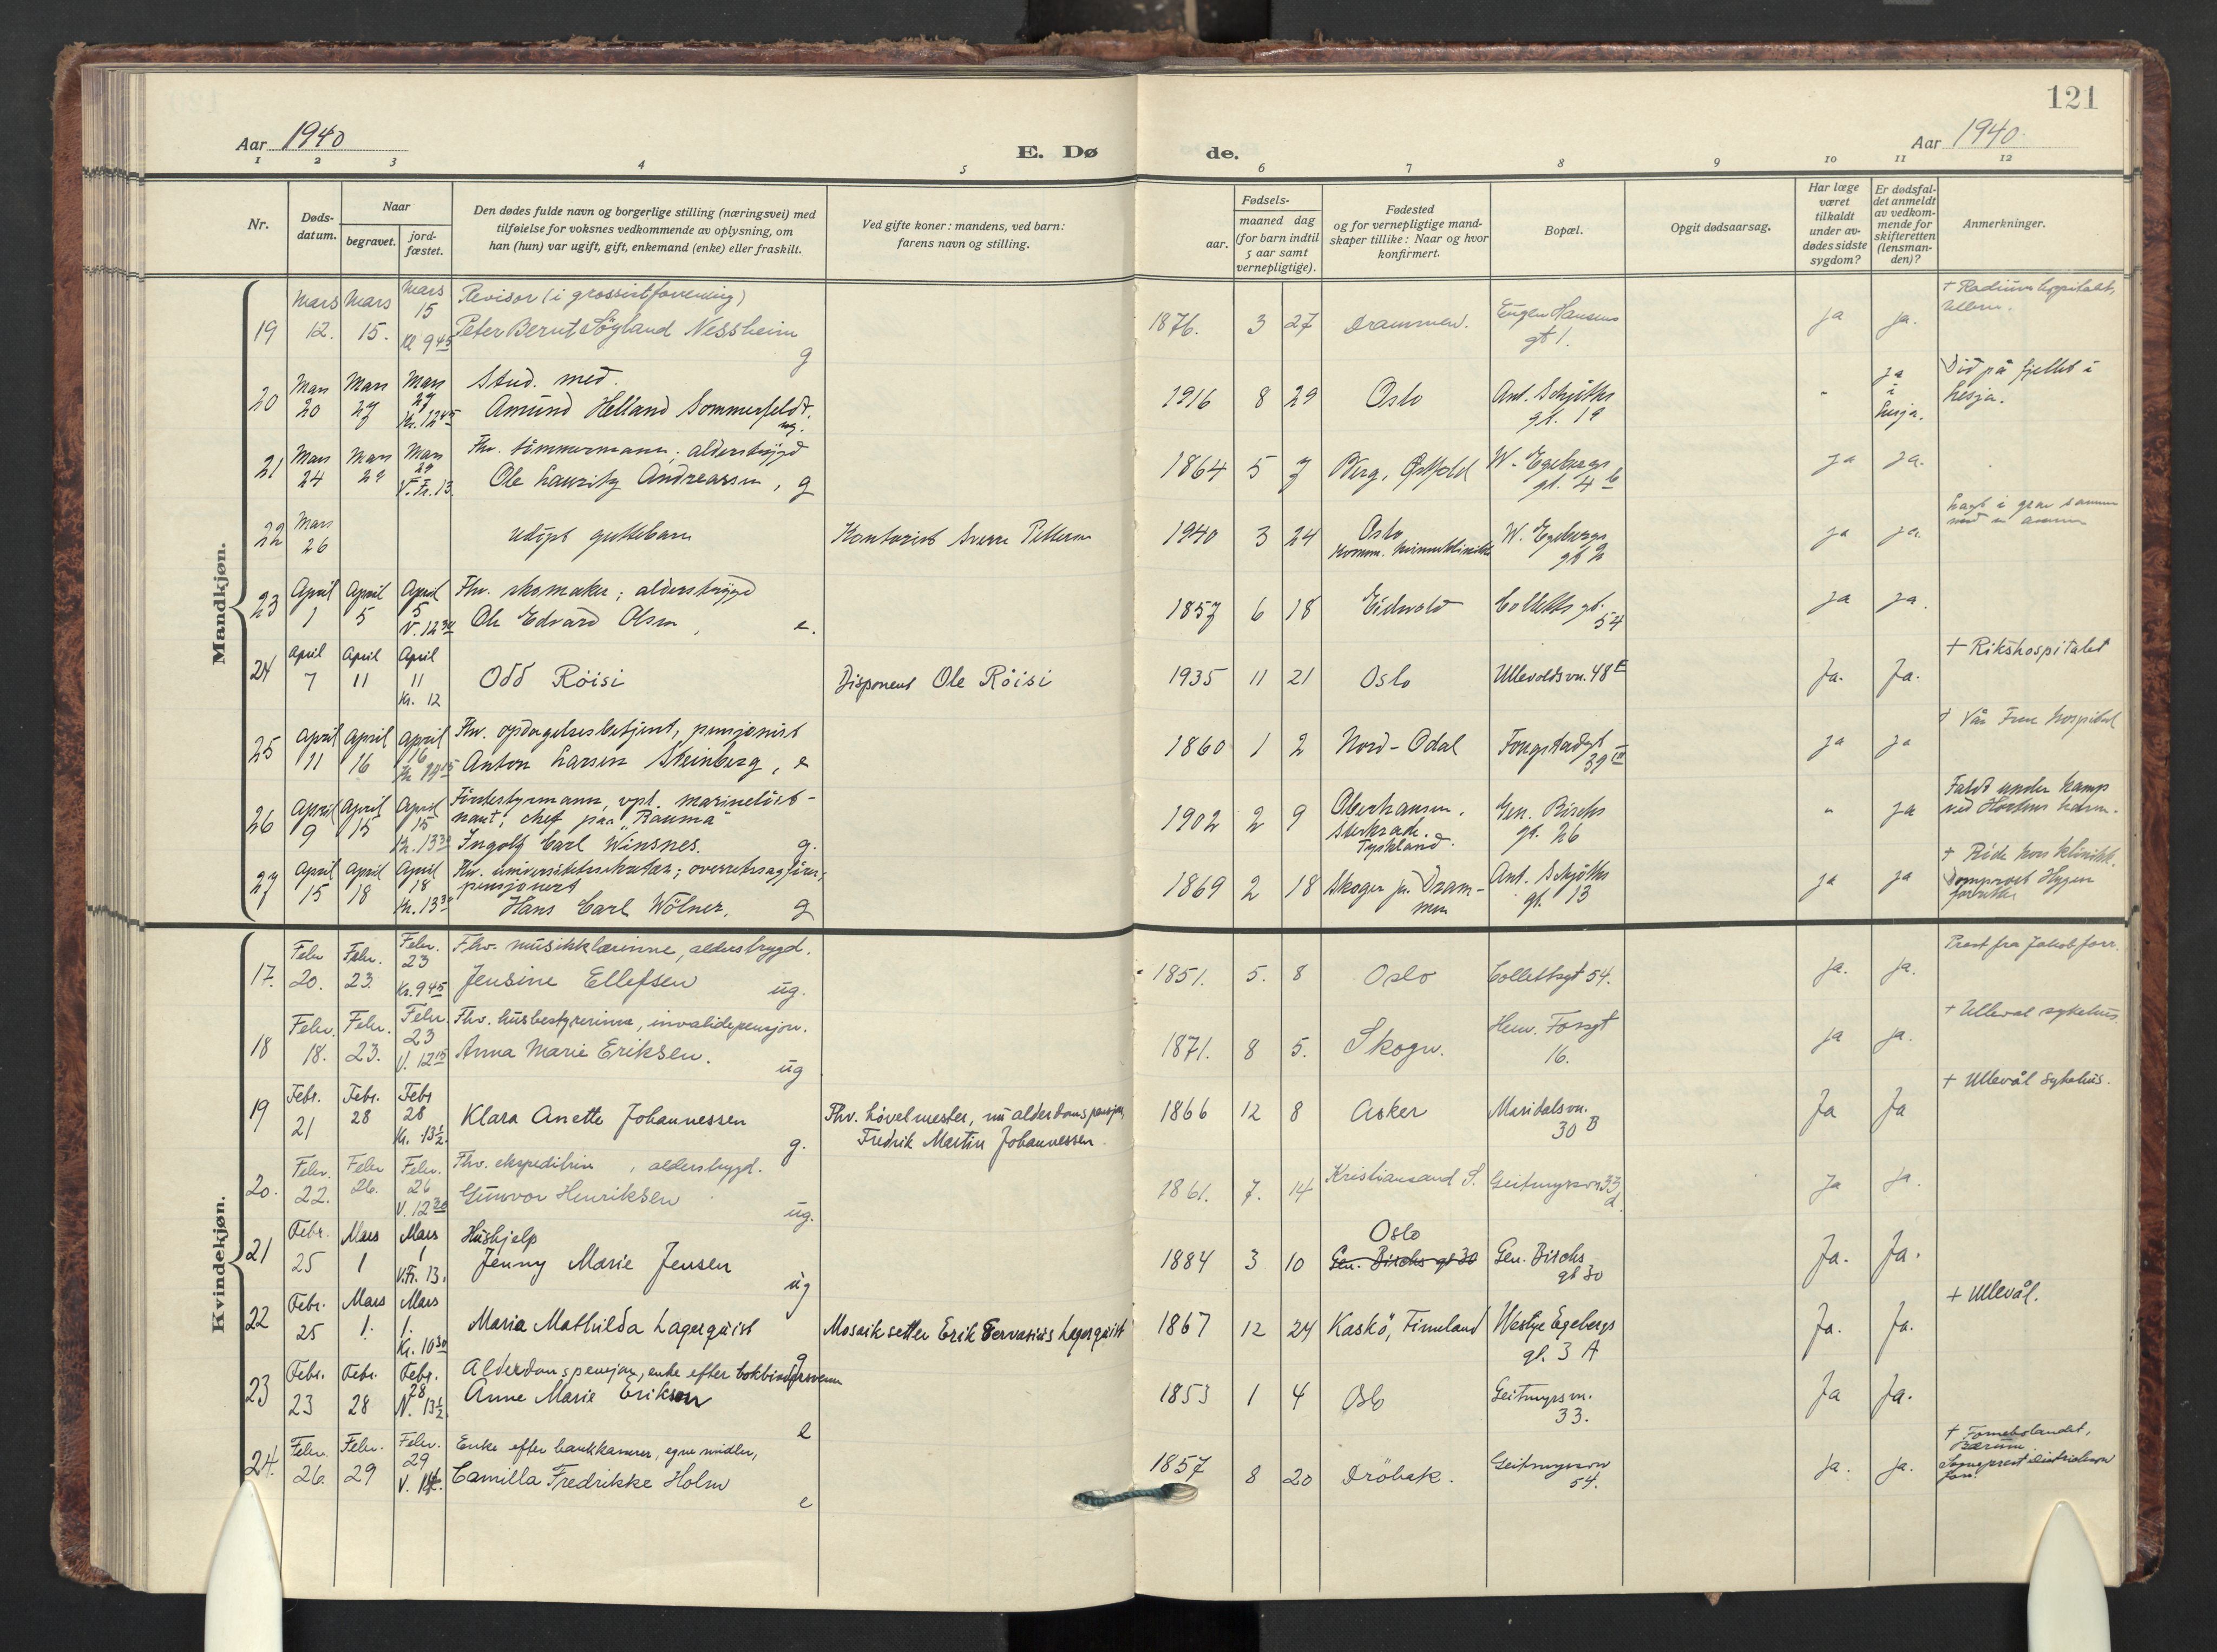 121
Aar 1940
E. Dø de.
Aar 1940
1 2 3 4 5 6 7 8 9 10 11 12
Nr.
Døds-
datum.
Naar
begravet.
jord-
fæstet.
Den dødes fulde navn og borgerlige stilling (næringsvei) med
tilføielse for voksnes vedkommende av oplysning, om
han (hun) var ugift, gift, enkemand (enke) eller fraskilt.
Ved gifte koner: mandens, ved barn:
farens navn og stilling.
Fødsels-
aar.
maaned dag
(for barn indtil
5 aar samt
vernepligtige).
Fødested
og for vernepligtige mand-
skaper tillike: Naar og hvor
konfirmert.
Bopæl.
Opgit dødsaarsag.
Har læge
været
tilkaldt
under av-
dødes sidste
sygdom?
Er dødsfal-
det anmeldt
av vedkom-
mende for
skifteretten
(lensman-
den)?
Anmerkninger.
Mandkjøn.
19 Mars 12. Mars 15. Mars 15 Kl 9 45
Revisor (i grossistforening)
Peter Bernt Söyland Nessheim g
1876. 3 27 Drammen. Eugen Hansens gt 1. ja ja.
+ Radiumhospitalet,
Ullern.
20 Mars 20 Mars 27 Mars 27 Kr. 12 45
Stud. med.
Amund Helland Sommerfeldt. ug.
1916 8 29 Oslo Ant. Schjöths gt. 19 - ja i Lesja.
Död på fjellet i
Lesja.
21 Mars 24 Mars 29 Mars 29 V. Fr. 13
Fhv. tömmermann; alderstrygd
Ole Lauritz Andreassen, g
1864 5 7 Berg, Östfold W. Egebergs gt. 4 b ja ja.
22 Mars 26
udöpt guttebarn
Kontorist Sverre Pettersen
1940 3 24 Oslo
Komm. kvinneklinikk W. Egebergs gt 2 ja ja.
Lagt i grav sammen
med en annen
23 April 1 April 5 April 5 V. 12 30
Fhv. skomaker; alderstrygd
Ole Edvard Olsen, e.
1857 6 18 Eidsvold Colletts gt. 54 ja ja.
24 April 7 April 11 April 11 Kr. 12
Odd Röisi
Disponent Ole Röisi
1935 11 21 Oslo Ullevoldsvn. 48 E Ja. Ja.
+ Rikshospitalet
25 April 11 April 16 April 16
Fhv. opdagelsesbetjent, pensjonist
Anton Larsen Steinberg, e
1860 1 2 Nord-Odal Fougstadsgt 39 III ja ja
+ Vår Frue hospital
26 April 9 April 15 April 15 Kr. 13 30
Förstestyrmann, vpl. marinelöit-
nant; chef paa "Rauma"
Ingolf Carl Winsnes. g.
1902 2 9 Oberhausen.
Sterkrade.
Tyskland. Gen. Birchs gt. 26 - ja
Faldt under kamp
ved Hortens havn.
27 April 15 April 18 April 18 Kr. 13 30
Fhv. universitetssekretær; overretssagförer,
pensjonert
Hans Carl Wölner. g
1869 2 18 Skoger pr. Dram-
men Ant. Schjöths gt. 13 ja ja
+ Röde kors klinikk.
Domprost Hygen
forretter
Kvindekjøn.
17. Febr 20. Febr. 23. Febr. 23 Kr. 9 45
Fhv. musikklærinne, alderstrygd.
Jensine Ellefsen ug.
1851. 5. 8 Oslo Collettsgt 54. ja. ja.
Prest fra Jakob forr.
18 Febr. 18. Febr. 23. Febr. 23 V. 12 15
Fhv. husbestyrerinne, invalidepensjon.
Anna Marie Eriksen. ug
1871. 8 5. Skogn. Henr. 16. ja ja.
+ Ulleval sykehus.
19 Febr. 21 Febr. 28 Febr 28 Kr. 13½
Klara Anette Johannessen g.
Fhv. hövelmester, nu alderdomspensjon,
Fredrik Martin Johannessen.
1866 12 8 Asker Maridalsvn. 30 B Ja Ja
+ Ullevål sykehus.
20. Febr. 22. Febr 26. Febr. 26 V. 12 30
Fhv. ekspeditrise, alderstrygd.
Gunvor Henriksen ug.
1861. 7. 14 Kristiansand S. Geitmyrsvn 33 d. ja ja.
21 Febr. 25 Mars 1 Mars 1 V.Fr. 13.
Hushjelp
Jenny Marie Jensen ug
1884 3 10 Oslo
Gen. Birchs gt 30 Gen. Birchs gt 30 Ja. Ja.
22 Febr. 25 Mars 1. Mars 1. Kr. 10 30
Maria Mathilda Lagerquist g
Mosaiksetter Erik Gervasius Lagerquist
1867 12 24 Kaskö, Finnland Westye Egebergs gt. 3 A Ja. Ja.
+ Ullevål.
23 Febr. 23 Febr. 28 Febr. 28 N. 13½
Alderdomspensjon, enke efter bokbindersvenn
Anne Marie Eriksen e
1853 1 4 Oslo Geitmyrsvn. 33. Ja Ja.
24. Febr. 26. Febr. 29 Febr. 29 V. 14
Enke efter bankkasserer, egne midler,
Camilla Fredrikke Holm e
1857 8 20 Dröbak. Geitmyrsvn 54. ja. ja.
+ Fornebolandet,
Bærum